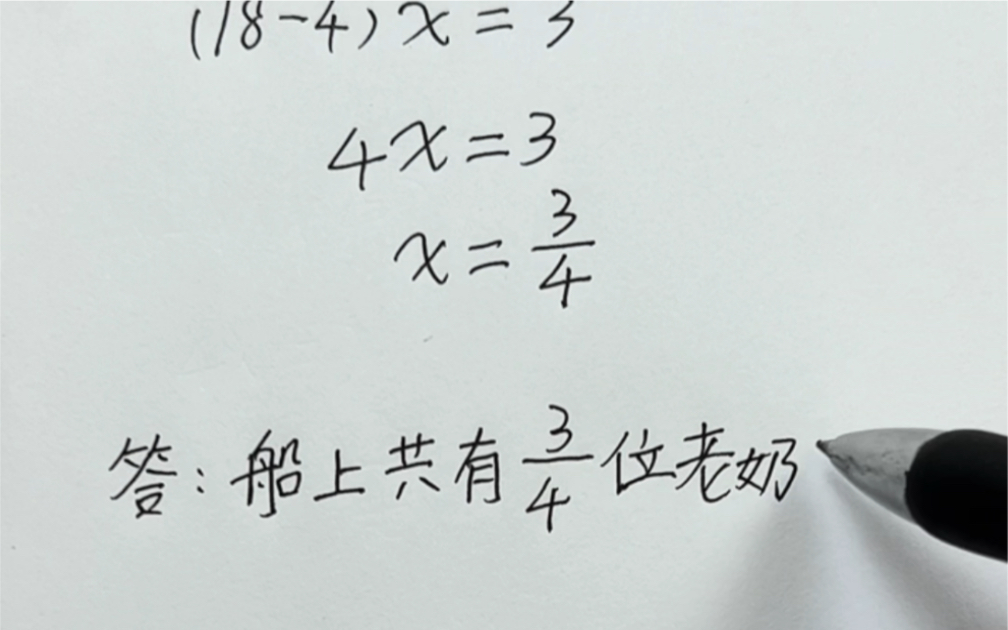 (18-4)x=3
4x=3
x=3/4
答：船上共有3/4位老奶